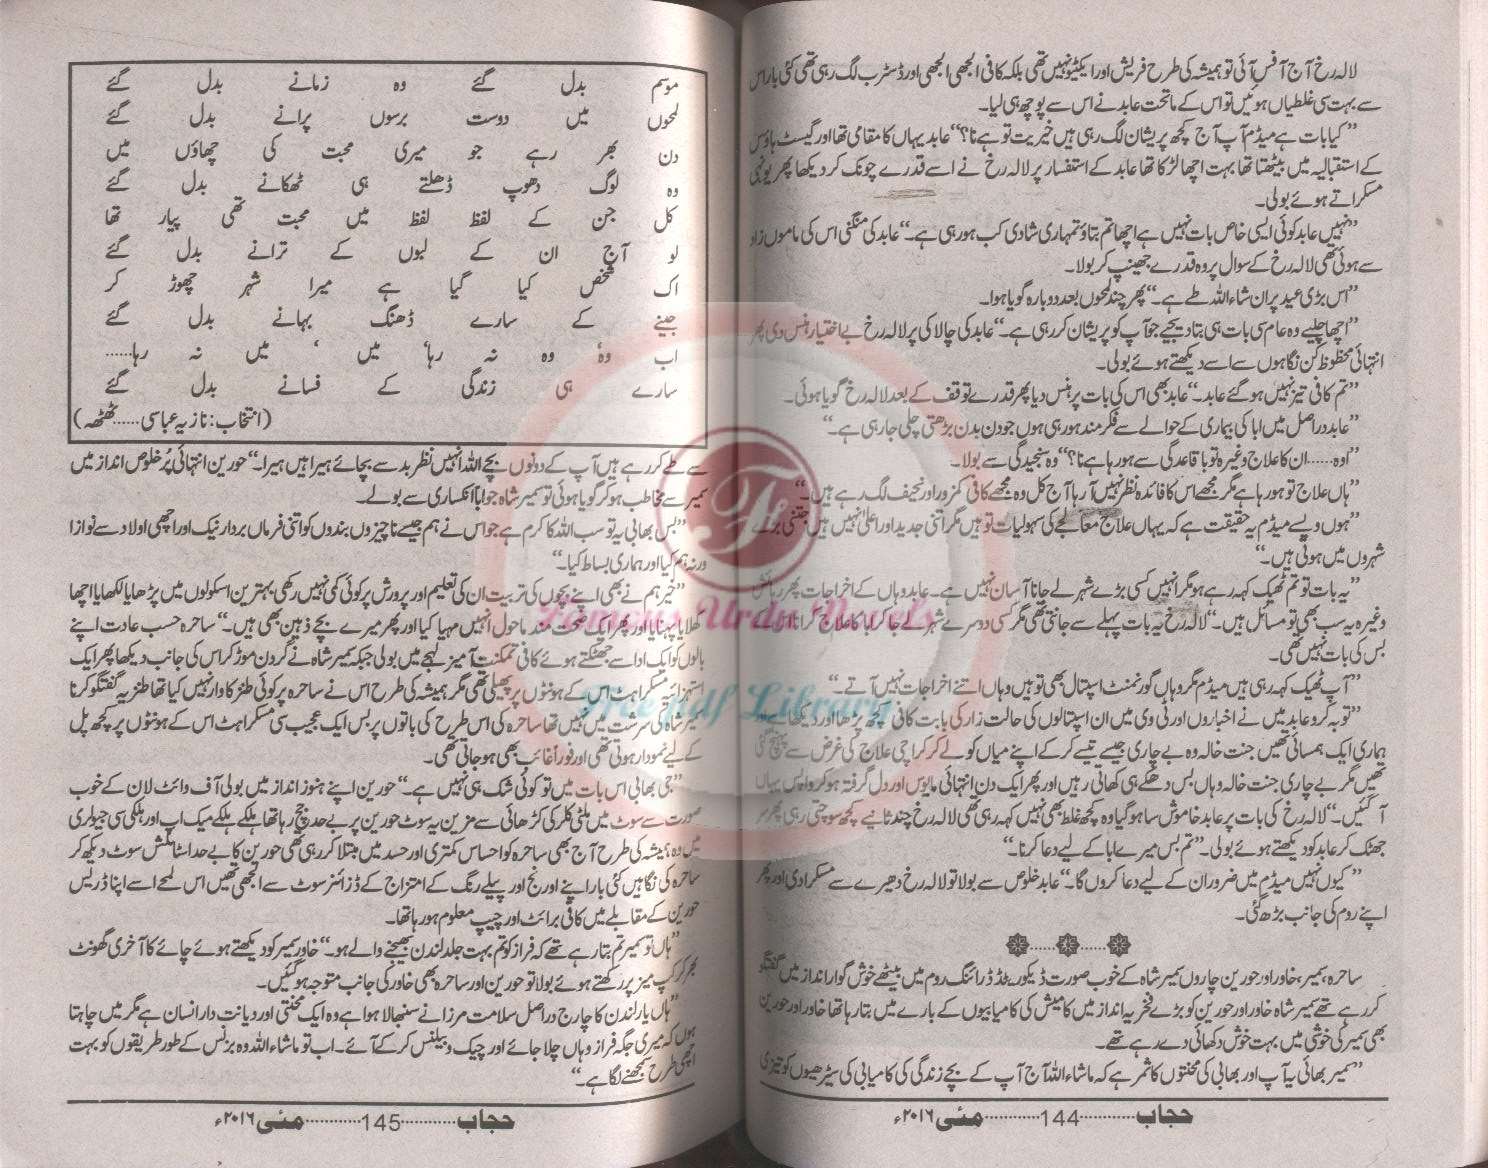 لالہ رخ آج آفس آئی تو ہمیشہ کی طرح فریش اور ایکٹیو نہیں تھی بلکہ کافی الجھی الجھی اور ڈسٹرب لگ رہی تھی کئی بار اس
سے بہت سی غلطیاں ہوئیں تو اس کے ماتحت عابد نے اس سے پوچھ ہی لیا۔
”کیا بات ہے میڈم آپ آج کچھ پریشان لگ رہی ہیں خیریت تو ہے نا؟“ عابد یہاں کا مقامی تھا اور گیسٹ ہاؤس
کے استقبالیہ میں بیٹھتا تھا بہت اچھا لڑکا تھا عابد کے استفسار پر لالہ رخ نے اسے قدرے چونک کر دیکھا پھر یونہی
مسکراتے ہوئے بولی۔
”نہیں عابد کوئی ایسی خاص بات نہیں ہے اچھا تم بتاؤ تمہاری شادی کب ہو رہی ہے۔“ عابد کی منگنی اس کی ماموں زاد
سے ہوئی تھی لالہ رخ کے سوال پر وہ قدرے جھینپ کر بولا۔
”اس بڑی عید پر ان شاء اللہ طے ہے۔“ پھر چند لمحوں بعد دوبارہ گویا ہوا۔
”اچھا چلیے وہ عام سی بات ہی بتا دیجیے جو آپ کو پریشان کر رہی ہے۔“ عابد کی چالاکی پر لالہ رخ بے اختیار ہنس دی پھر
انتہائی محظوظ کن نگاہوں سے اسے دیکھتے ہوئے بولی۔
”تم کافی تیز نہیں ہو گئے عابد۔“ عابد بھی اس کی بات پر ہنس دیا پھر قدرے توقف کے بعد لالہ رخ گویا ہوئی۔
”عابد دراصل میں ابا کی بیماری کے حوالے سے فکر مند ہو رہی ہوں جو دن بدن بڑھتی چلی جا رہی ہے۔“
”اوہ...... ان کا علاج وغیرہ تو باقاعدگی سے ہو رہا ہے نا؟“ وہ سنجیدگی سے بولا۔
”ہاں علاج تو ہو رہا ہے مگر مجھے اس کا فائدہ نظر نہیں آ رہا آج کل وہ مجھے کافی کمزور اور نحیف لگ رہے ہیں۔“
”ہوں ویسے میڈم یہ حقیقت ہے کہ یہاں علاج معالجے کی سہولیات تو ہیں مگر اتنی جدید اور اعلیٰ نہیں ہیں جتنی بڑے
شہروں میں ہوتی ہیں۔“
”یہ بات تو تم ٹھیک کہہ رہے ہو مگر انہیں کسی بڑے شہر لے جانا آسان نہیں ہے۔ عابد وہاں کے اخراجات پھر رہائش
وغیرہ یہ سب بھی تو مسائل ہیں۔“ لالہ رخ یہ بات پہلے سے جانتی تھی مگر کسی دوسرے شہر لے جا کر ابا کا علاج کرانا اس کے
بس کی بات نہیں تھی۔
”آپ ٹھیک کہہ رہی ہیں میڈم مگر وہاں گورنمنٹ اسپتال بھی تو ہیں وہاں اتنے اخراجات نہیں آتے۔“
”توبہ کرو عابد میں نے اخباروں اور ٹی وی میں ان اسپتالوں کی حالت زار کی بابت کافی کچھ پڑھا اور دیکھا ہے۔
ہماری ایک ہمسائی تھیں جنت خالہ وہ بے چاری جیسے تیسے کر کے اپنے میاں کو لے کر کراچی علاج کی غرض سے پہنچ گئی
تھیں مگر بے چاری جنت خالہ وہاں بس دھکے ہی کھاتی رہیں اور پھر ایک دن انتہائی مایوس اور دل گرفتہ ہو کر واپس یہاں
آ گئیں۔“ لالہ رخ کی بات پر عابد خاموش سا ہو گیا وہ کچھ غلط بھی نہیں کہہ رہی تھی لالہ رخ چند ثانیے کچھ سوچتی رہی پھر سر
جھٹک کر عابد کو دیکھتے ہوئے بولی۔ ”تم بس میرے ابا کے لیے دعا کرنا۔“
”کیوں نہیں میڈم میں ضرور ان کے لیے دعا کروں گا۔“ عابد خلوص سے بولا تو لالہ رخ دھیرے سے مسکرا دی اور پھر
اپنے روم کی جانب بڑھ گئی۔
ساحرہ، سمیر، خاور اور حورین چاروں سمیر شاہ کے خوب صورت ڈیکوریٹڈ ڈرائنگ روم میں بیٹھے خوش گوار انداز میں گفتگو
کر رہے تھے سمیر شاہ خاور اور حورین کو بڑے فخریہ انداز میں کامیش کی کامیابیوں کے بارے میں بتا رہا تھا خاور اور حورین
بھی سمیر کی خوشی میں بہت خوش دکھائی دے رہے تھے۔
”سمیر بھائی یہ آپ اور بھابی کی محنتوں کا ثمر ہے کہ ماشاء اللہ آج آپ کے بچے زندگی کی کامیابی کی سیڑھیوں کو تیزی
حجاب ............ 144 ............ مئی ۲۰۱۶ء
موسم بدل گئے وہ زمانے بدل گئے
لمحوں میں دوست برسوں پرانے بدل گئے
دن بھر رہے جو میری محبت کی چھاؤں میں
وہ لوگ دھوپ ڈھلتے ہی ٹھکانے بدل گئے
کل جن کے لفظ لفظ میں محبت تھی پیار تھا
لو آج ان کے لبوں کے ترانے بدل گئے
اک شخص کیا گیا ہے میرا شہر چھوڑ کر
جینے کے سارے ڈھنگ بہانے بدل گئے
اب وہ‘ وہ نہ رہا‘ میں‘ میں نہ رہا......
سارے ہی زندگی کے فسانے بدل گئے
(انتخاب: نازیہ عباسی...... ٹھٹھہ)
سے طے کر رہے ہیں آپ کے دونوں بچے اللہ انہیں نظر بد سے بچائے ہیرا ہیں ہیرا۔“ حورین انتہائی پر خلوص انداز میں
سمیر سے مخاطب ہو کر گویا ہوئی تو سمیر شاہ جواباً انکساری سے بولے۔
”بس بھابی یہ تو سب اللہ کا کرم ہے جو اس نے ہم جیسے ناچیزوں بندوں کو اتنی فرماں بردار نیک اور اچھی اولاد سے نوازا
ورنہ ہم کیا اور ہماری بساط کیا۔“
”خیر ہم نے بھی اپنے بچوں کی تربیت ان کی تعلیم اور پرورش پر کوئی کمی نہیں رکھی بہترین اسکولوں میں پڑھایا لکھایا اچھا
کھلایا پہنایا اور پھر ایک صحت مند ماحول انہیں مہیا کیا اور پھر میرے بچے ذہین بھی ہیں۔“ ساحرہ حسب عادت اپنے
بالوں کو ایک ادا سے جھٹکتے ہوئے کافی تمکنت آمیز لہجے میں بولی جبکہ سمیر شاہ نے گردن موڑ کر اس کی جانب دیکھا پھر ایک
استہزائیہ مسکراہٹ اس کے ہونٹوں پر پھیلی تھی مگر ہمیشہ کی طرح اس نے ساحرہ پر کوئی طنز کا وار نہیں کیا تھا طنزیہ گفتگو کرنا
سمیر شاہ کی سرشت میں نہیں تھا ساحرہ کی اس طرح کی باتوں پر بس ایک عجیب سی مسکراہٹ اس کے ہونٹوں پر کچھ پل
کے لیے نمودار ہوتی تھی اور فوراً غائب بھی ہو جاتی تھی۔
”جی بھابی اس بات میں تو کوئی شک ہی نہیں ہے۔“ حورین اپنے ہنوز انداز میں بولی آف وائٹ لان کے خوب
صورت سے سوٹ میں ملٹی کلر کی کڑھائی سے مزین یہ سوٹ حورین پر بے حد جچ رہا تھا ہلکے ہلکے میک اپ اور ہلکی سی جیولری
میں وہ ہمیشہ کی طرح آج بھی ساحرہ کو احساس کمتری اور حسد میں مبتلا کر رہی تھی حورین کا بے حد اسٹائلش سوٹ دیکھ کر
ساحرہ کی نگاہیں کئی بار اپنے اورنج اور پیلے رنگ کے امتزاج کے ڈیزائنر سوٹ سے الجھی تھیں اس لمحے اسے اپنا ڈریس
حورین کے مقابلے میں کافی برائٹ اور چیپ معلوم ہو رہا تھا۔
”ہاں تو سمیر تم بتا رہے تھے کہ فراز کو تم بہت جلد لندن بھیجنے والے ہو۔“ خاور سمیر کو دیکھتے ہوئے چائے کا آخری گھونٹ
بھر کر کپ میز پر رکھتے ہوئے بولا تو حورین اور ساحرہ بھی خاور کی جانب متوجہ ہو گئیں۔
”ہاں یار لندن کا چارج دراصل سلامت مرزا نے سنبھالا ہوا ہے وہ ایک محنتی اور دیانت دار انسان ہے مگر میں چاہتا
ہوں کہ میری جگہ فراز وہاں چلا جائے اور چیک و بیلنس کر کے آئے۔ اب تو ماشاء اللہ وہ بزنس کے طور طریقوں کو بہت
اچھی طرح سمجھنے لگا ہے۔“
حجاب ............ 145 ............ مئی ۲۰۱۶ء
Famous Urdu Novels
Free pdf Library